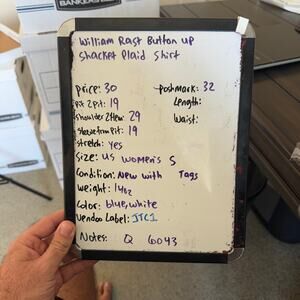 BANKERS BOX
William Rast Button up
Shacket Plaid Shirt
price: 30
Poshmark: 32
Pit 2 pit: 19
Length:
Shoulder 2 Hem: 29
Waist:
Sleeve from Pit: 19
Stretch: yes
Size: US Women's S
Condition: New with Tags
Weight: 14oz
Color: blue, white
Vendoo Label: JTC1
Notes: Q 6043